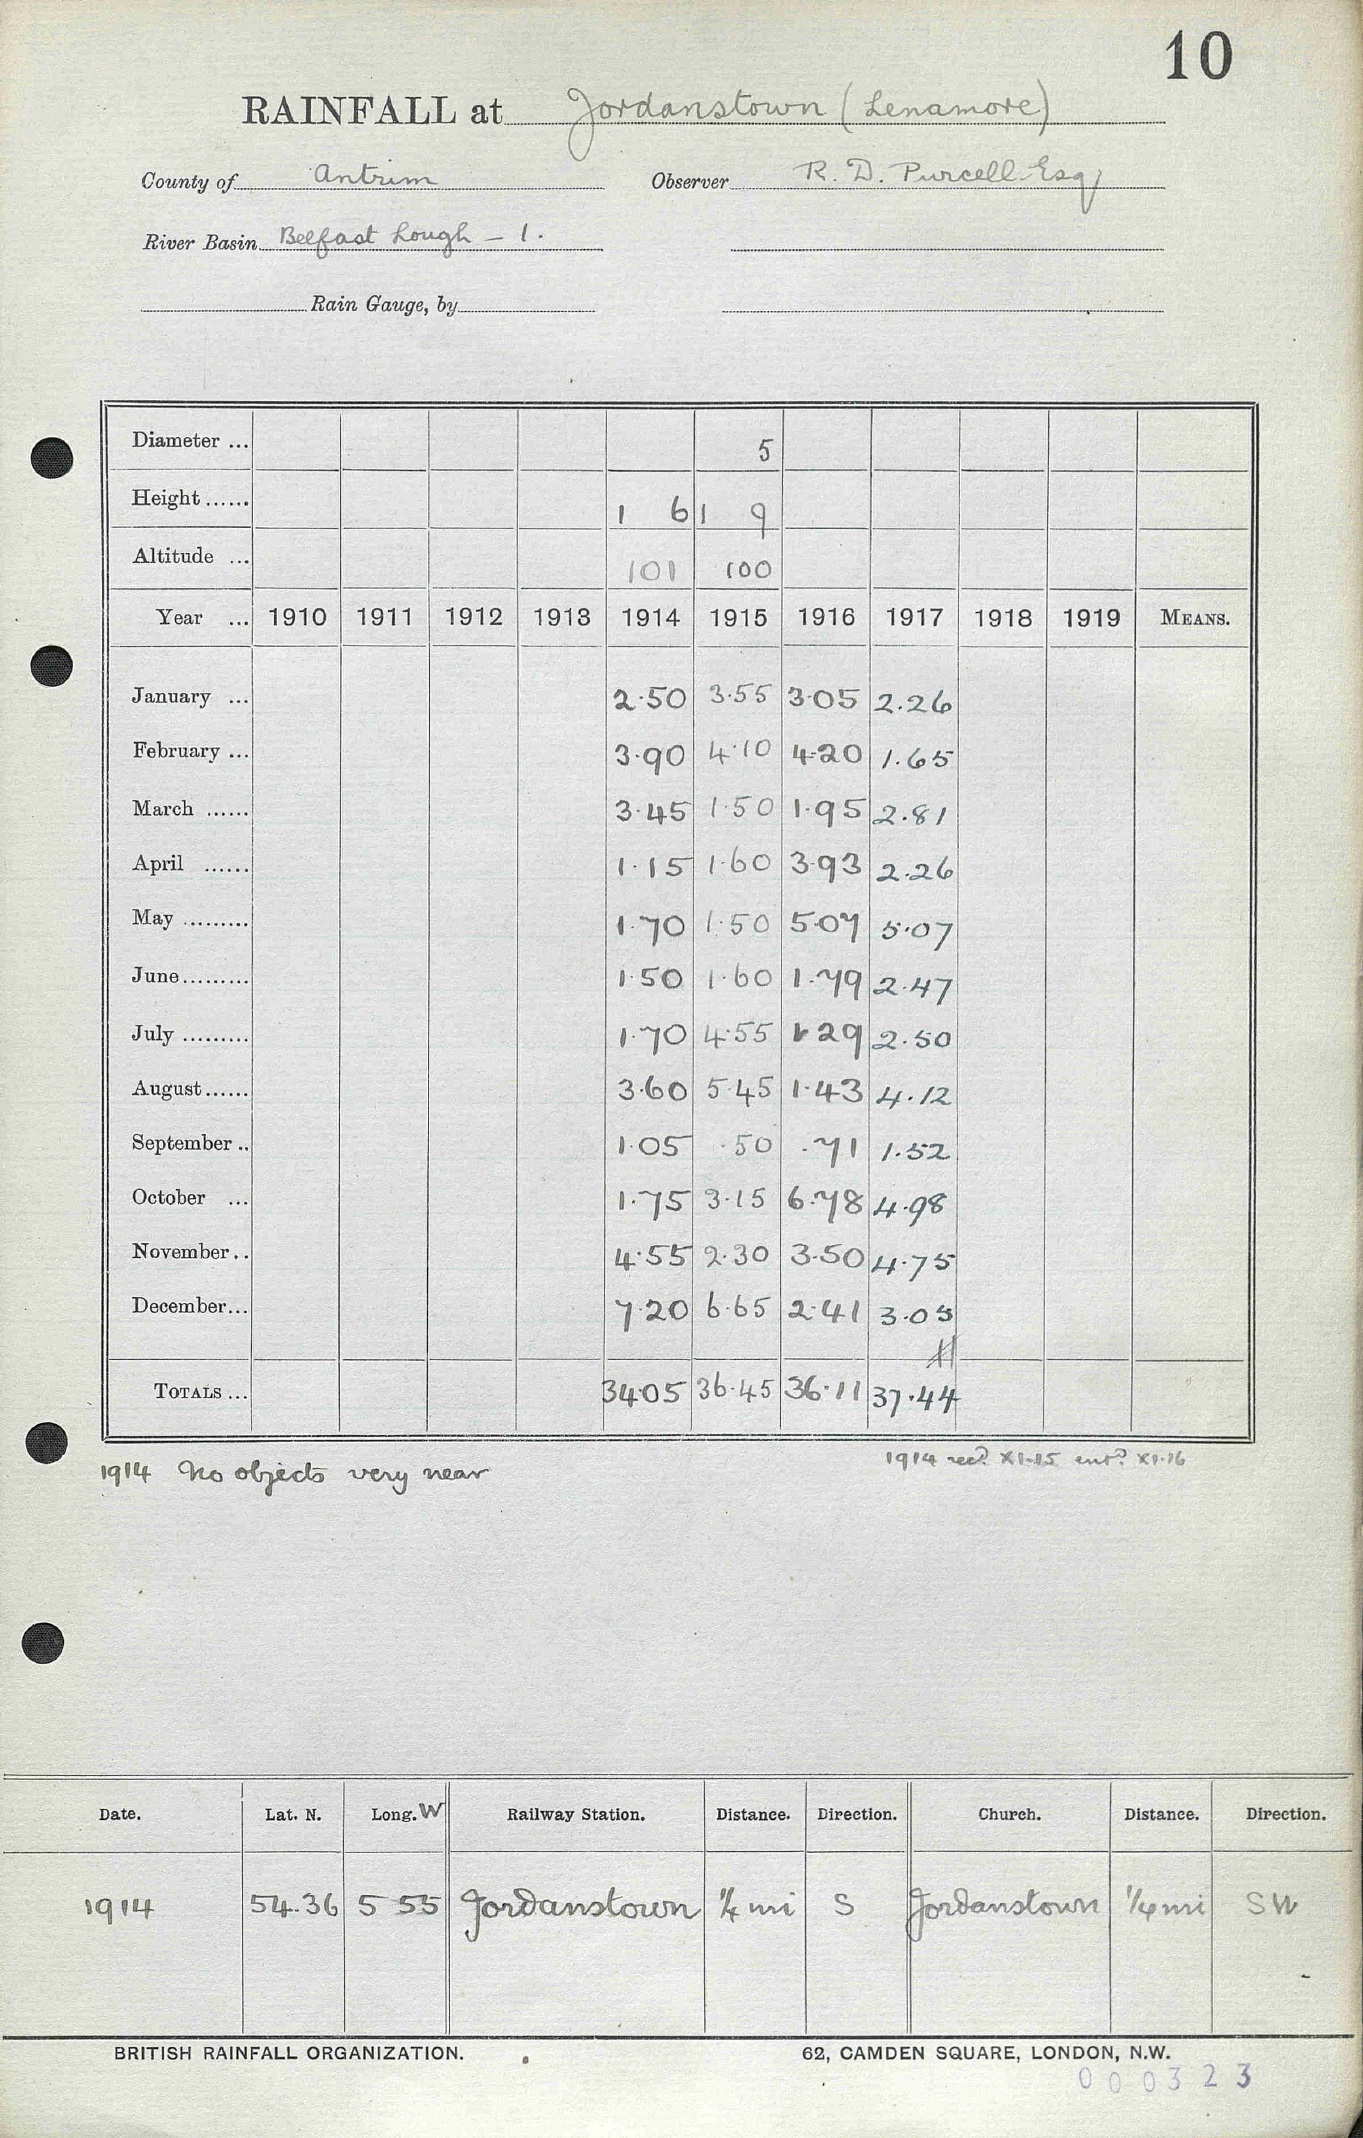 10
RAINFALL at Jordanstown (Lenamore)
County of Antrim Observer R. D. Purcell Esq
River Basin Belfast Lough - 1.
Rain Gauge, by
Diameter ... 5
Height ...... 1 6 1 9
Altitude ... 101 100
Year ... 1910 1911 1912 1913 1914 1915 1916 1917 1918 1919 MEANS.
January ... 2.50 3.55 3.05 2.26
February ... 3.90 4.10 4.20 1.65
March ...... 3.45 1.50 1.95 2.81
April ...... 1.15 1.60 3.93 2.26
May ......... 1.70 1.50 5.07 5.07
June ......... 1.50 1.60 1.79 2.47
July ......... 1.70 4.55 1.29 2.50
August ...... 3.60 5.45 1.43 4.12
September .. 1.05 .50 .71 1.52
October ... 1.75 3.15 6.78 4.98
November .. 4.55 2.30 3.50 4.75
December ... 7.20 6.65 2.41 3.05
TOTALS ... 34.05 36.45 36.11 37.44
1914 No objects very near
1914 recd. XI.15 entd. XI.16
Date. Lat. N. Long. W Railway Station. Distance. Direction. Church. Distance. Direction.
1914 54.36 5 55 Jordanstown 1/4 mi S Jordanstown 1/4 mi SW
BRITISH RAINFALL ORGANIZATION. 62, CAMDEN SQUARE, LONDON, N.W.
000323